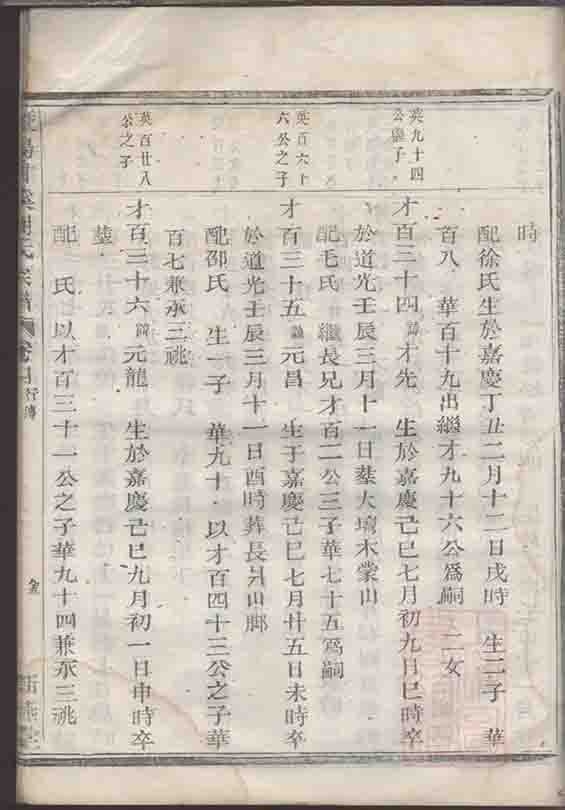 時
配徐氏生於嘉慶丁丑二月十二日戌時 生二子 華
百八 華百十九出繼才九十六公爲嗣 二女
英九十四
公繼子
才百三十四 諱才先 生於嘉慶己巳七月初九日巳時卒
於道光壬辰三月十一日塟大壇木棠山
配毛氏 繼長兄才百二公三子華七十五爲嗣
英百六十
六公之子
才百三十五 諱元昌 生于嘉慶己巳七月廿五日未時卒
於道光壬辰三月十一日酉時葬長爿山脚
配邵氏 生一子 華九十 以才百四十三公之子華
百七兼承三祧
英百廿八
公之子
才百三十六 諱元龍 生於嘉慶己巳九月初一日申時卒
塟
配 氏 以才百三十一公之子華九十四兼承三祧
氏宗譜 卷 行傳